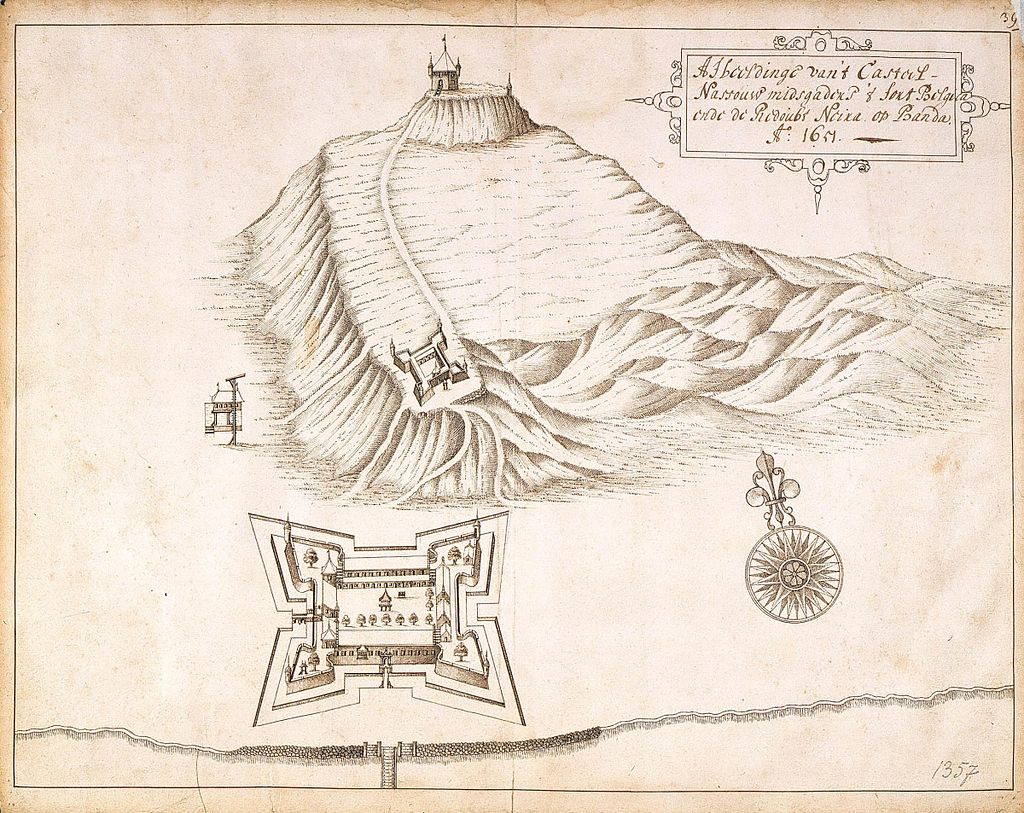 39
Afbeeldinge van't Casteel-
Nassouw midsgaders 't fort Belgica
ende de Redoubt Neira op Banda,
Aº. 1651.
1357